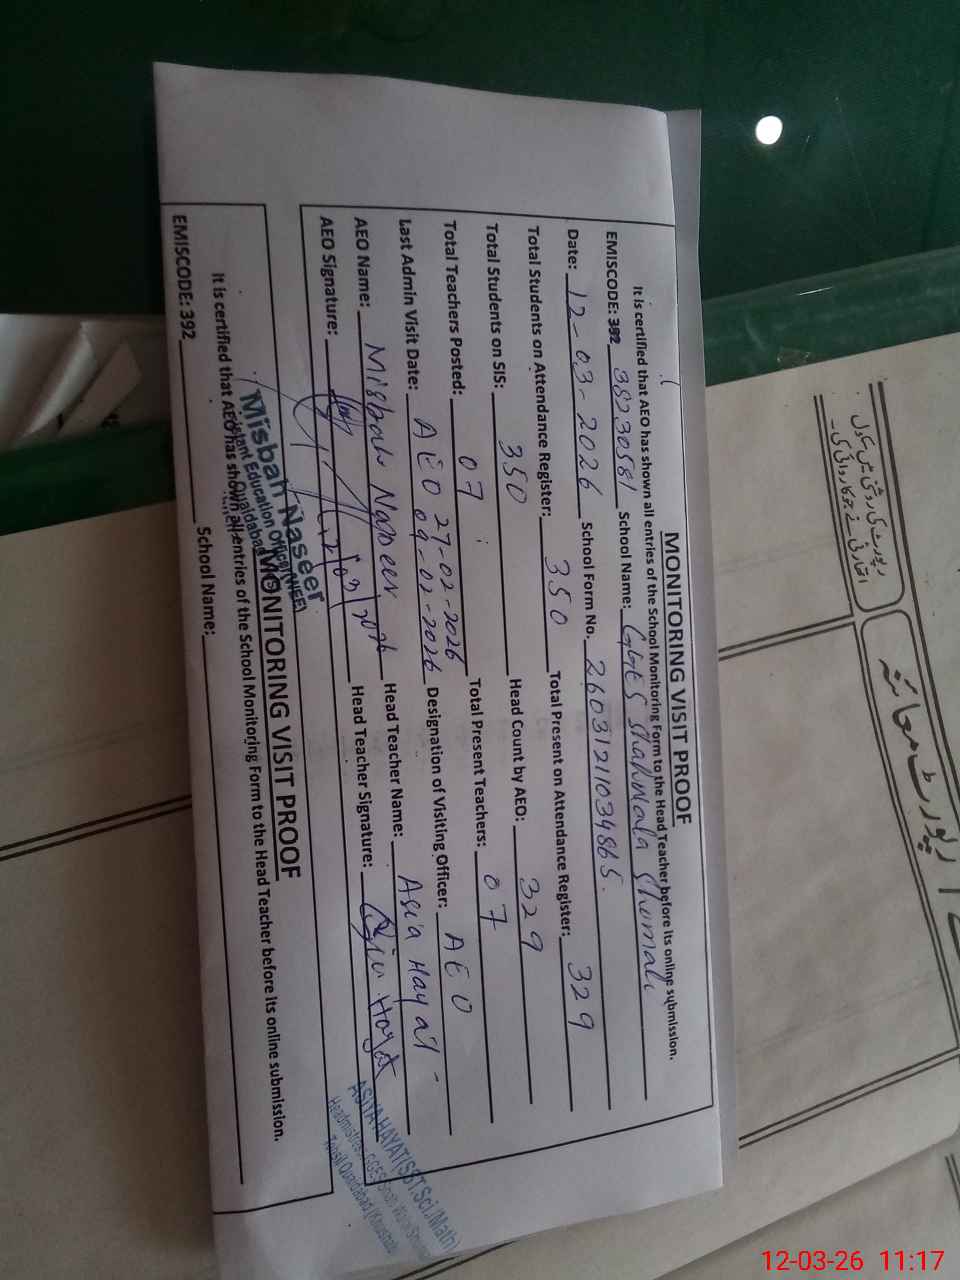 MONITORING VISIT PROOF
It is certified that AEO has shown all entries of the School Monitoring Form to the Head Teacher before its online submission.
EMISCODE: 392 38230581 School Name: GGES Shahwala Shumali
Date: 12-03-2026 School Form No. 26031211034865.
Total Students on Attendance Register: 350 Total Present on Attendance Register: 329
Total Students on SIS: 350 Head Count by AEO: 329
Total Teachers Posted: 07 Total Present Teachers: 07
Last Admin Visit Date: AEO 27-02-2026 09-02-2026 Designation of Visiting Officer: AEO
AEO Name: Misbah Naseer Head Teacher Name: Asia Hayat
AEO Signature: Head Teacher Signature: Asia Hayat
Misbah Naseer
Assistant Education Officer (WEE)
Quaidabad
ASIYA HAYAT (SST.Sci./Math)
Headmistress GGES
Tehsil Quaidabad (Khushab)
MONITORING VISIT PROOF
It is certified that AEO has shown all entries of the School Monitoring Form to the Head Teacher before its online submission.
EMISCODE: 392 School Name:
رپورٹ معائنہ
رپورٹ کی روشنی میں سکول
اتھارٹی نے جو کاروائی کی۔
12-03-26 11:17